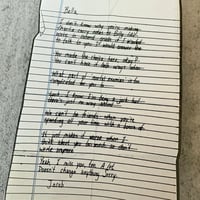 Bella,
I don't know why you're making
Charlie carry notes to Billy like
we're in second grade if I wanted
to talk to you I would answer the
You made the choice here, okay?
You can't have it both ways when
What part of mortal enemies is too
complicated for you to
Look I know I'm being a jerk but
there's just no way around
We can't be friends when you're
spending all your time with a bunch of
It just makes it worse when I
think about you too much so don't
write anymore
Yeah I miss you too. A lot.
Doesn't change anything. Sorry.
Jacob